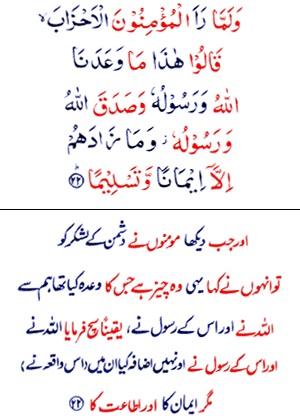 وَلَمَّا رَاَ الْمُؤْمِنُوْنَ الْاَحْزَابَ ۙ
قَالُوْا هٰذَا مَا وَعَدَنَا
اللهُ وَرَسُوْلُهٗ وَصَدَقَ اللهُ
وَرَسُوْلُهٗ ؗ وَمَا زَادَهُمْ
اِلَّاۤ اِيْمَانًا وَّتَسْلِيْمًا ؕ ﴿۲۲﴾
اور جب دیکھا مومنوں نے دشمن کے لشکر کو
تو انہوں نے کہا یہی وہ چیز ہے جس کا وعدہ کیا تھا ہم سے
اللہ نے اور اس کے رسول نے، یقیناً سچ فرمایا اللہ نے
اور اس کے رسول نے اور نہیں اضافہ کیا ان میں (اس واقعہ نے)
مگر ایمان کا اور اطاعت کا ﴿۲۲﴾